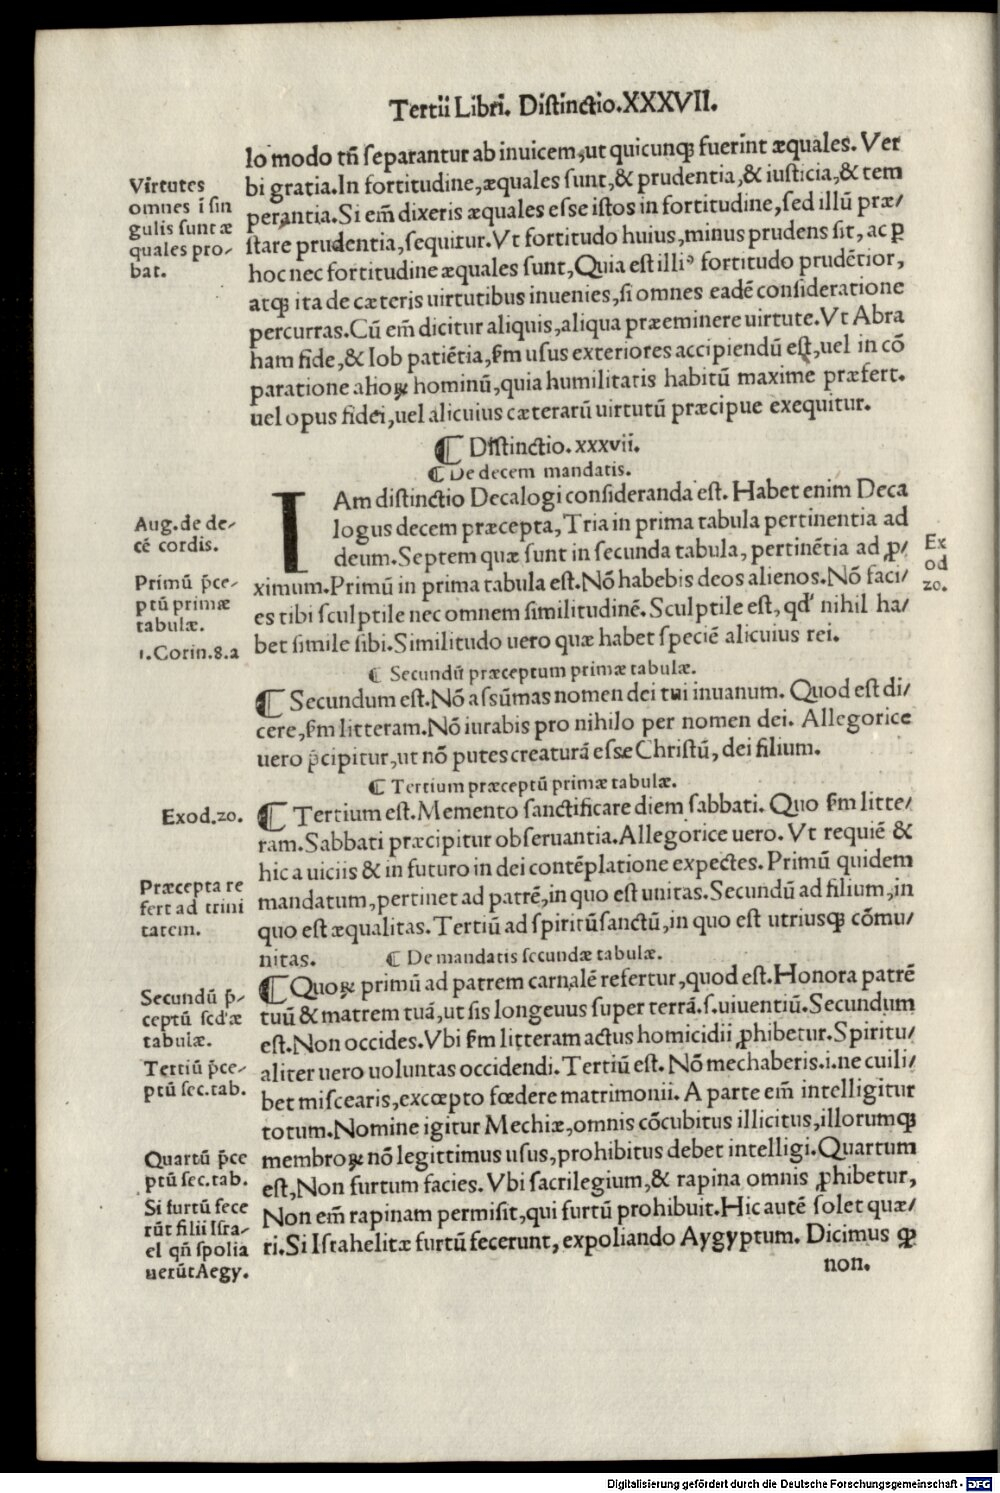 Tertii Libri. Distinctio.XXXVII.
lo modo tñ separantur ab inuicem,ut quicunqꝫ fuerint æquales. Ver
bi gratia.In fortitudine,æquales sunt,& prudentia,& iusticia,& tem
perantia.Si em̃ dixeris æquales esse istos in fortitudine,sed illũ præ/
stare prudentia,sequitur.Vt fortitudo huius,minus prudens sit, ac ꝑ
hoc nec fortitudine æquales sunt,Quia est illiꝰ fortitudo prudẽtior,
atqꝫ ita de cæteris uirtutibus inuenies,si omnes eadẽ consideratione
percurras.Cũ em̃ dicitur aliquis,aliqua præeminere uirtute.Vt Abra
ham fide,& Iob patiẽtia,ẜm usus exteriores accipiendũ est,uel in cõ
paratione alioꝝ hominũ,quia humilitatis habitũ maxime præfert.
uel opus fidei,uel alicuius cæterarũ uirtutũ præcipue exequitur.
Virtutes
omnes ĩ sin
gulis sunt æ
quales pro-
bat.
¶ Distinctio.xxxvii.
¶ De decem mandatis.
IAm distinctio Decalogi consideranda est. Habet enim Deca
logus decem præcepta, Tria in prima tabula pertinentia ad
deum.Septem quæ sunt in secunda tabula, pertinẽtia ad ꝓ/
ximum.Primũ in prima tabula est.Nõ habebis deos alienos.Nõ faci/
es tibi sculptile nec omnem similitudinẽ. Sculptile est, qđ nihil ha/
bet simile sibi.Similitudo uero quæ habet speciẽ alicuius rei.
Aug.de de-
cẽ cordis.
Primũ p̃ce-
ptũ primæ
tabulæ.
1.Corin.8.a
Ex
od
20.
¶ Secundũ præceptum primæ tabulæ.
¶ Secundum est.Nõ assũmas nomen dei tui inuanum. Quod est di/
cere,ẜm litteram.Nõ iurabis pro nihilo per nomen dei. Allegorice
uero p̃cipitur,ut nõ putes creaturã esse Christũ, dei filium.
¶ Tertium præceptũ primæ tabulæ.
¶ Tertium est.Memento sanctificare diem sabbati. Quo ẜm litte/
ram.Sabbati præcipitur obseruantia.Allegorice uero. Vt requiẽ &
hic a uiciis & in futuro in dei contẽplatione expectes. Primũ quidem
mandatum,pertinet ad patrẽ,in quo est unitas.Secundũ ad filium,in
quo est æqualitas. Tertiũ ad spiritũ sanctũ,in quo est utriusqꝫ cõmu/
nitas. ¶ De mandatis secundæ tabulæ.
Exod.20.
Præcepta re
fert ad trini
tatem.
¶ Quoꝝ primũ ad patrem carnalẽ refertur,quod est.Honora patrẽ
tuũ & matrem tuã,ut sis longeuus super terrã.s.uiuentiũ.Secundum
est.Non occides.Vbi ẜm litteram actus homicidii ꝓhibetur.Spiritu/
aliter uero uoluntas occidendi. Tertiũ est. Nõ mechaberis.i.ne cuili/
bet miscearis,excœpto fœdere matrimonii. A parte em̃ intelligitur
totum.Nomine igitur Mechiæ,omnis cõcubitus illicitus,illorumqꝫ
membroꝝ nõ legittimus usus,prohibitus debet intelligi.Quartum
est,Non furtum facies. Vbi sacrilegium,& rapina omnis ꝓhibetur,
Non em̃ rapinam permisit,qui furtũ prohibuit.Hic autẽ solet quæ/
ri.Si Israhelitæ furtũ fecerunt, expoliando Aygyptum. Dicimus ꝙ
non.
Secundũ p̃-
ceptũ scđæ
tabulæ.
Tertiũ p̃ce-
ptũ sec.tab.
Quartũ p̃ce
ptũ sec.tab.
Si furtũ fece
rũt filii Isra-
el qñ spolia
uerũt Aegy.
Digitalisierung gefördert durch die Deutsche Forschungsgemeinschaft - DFG